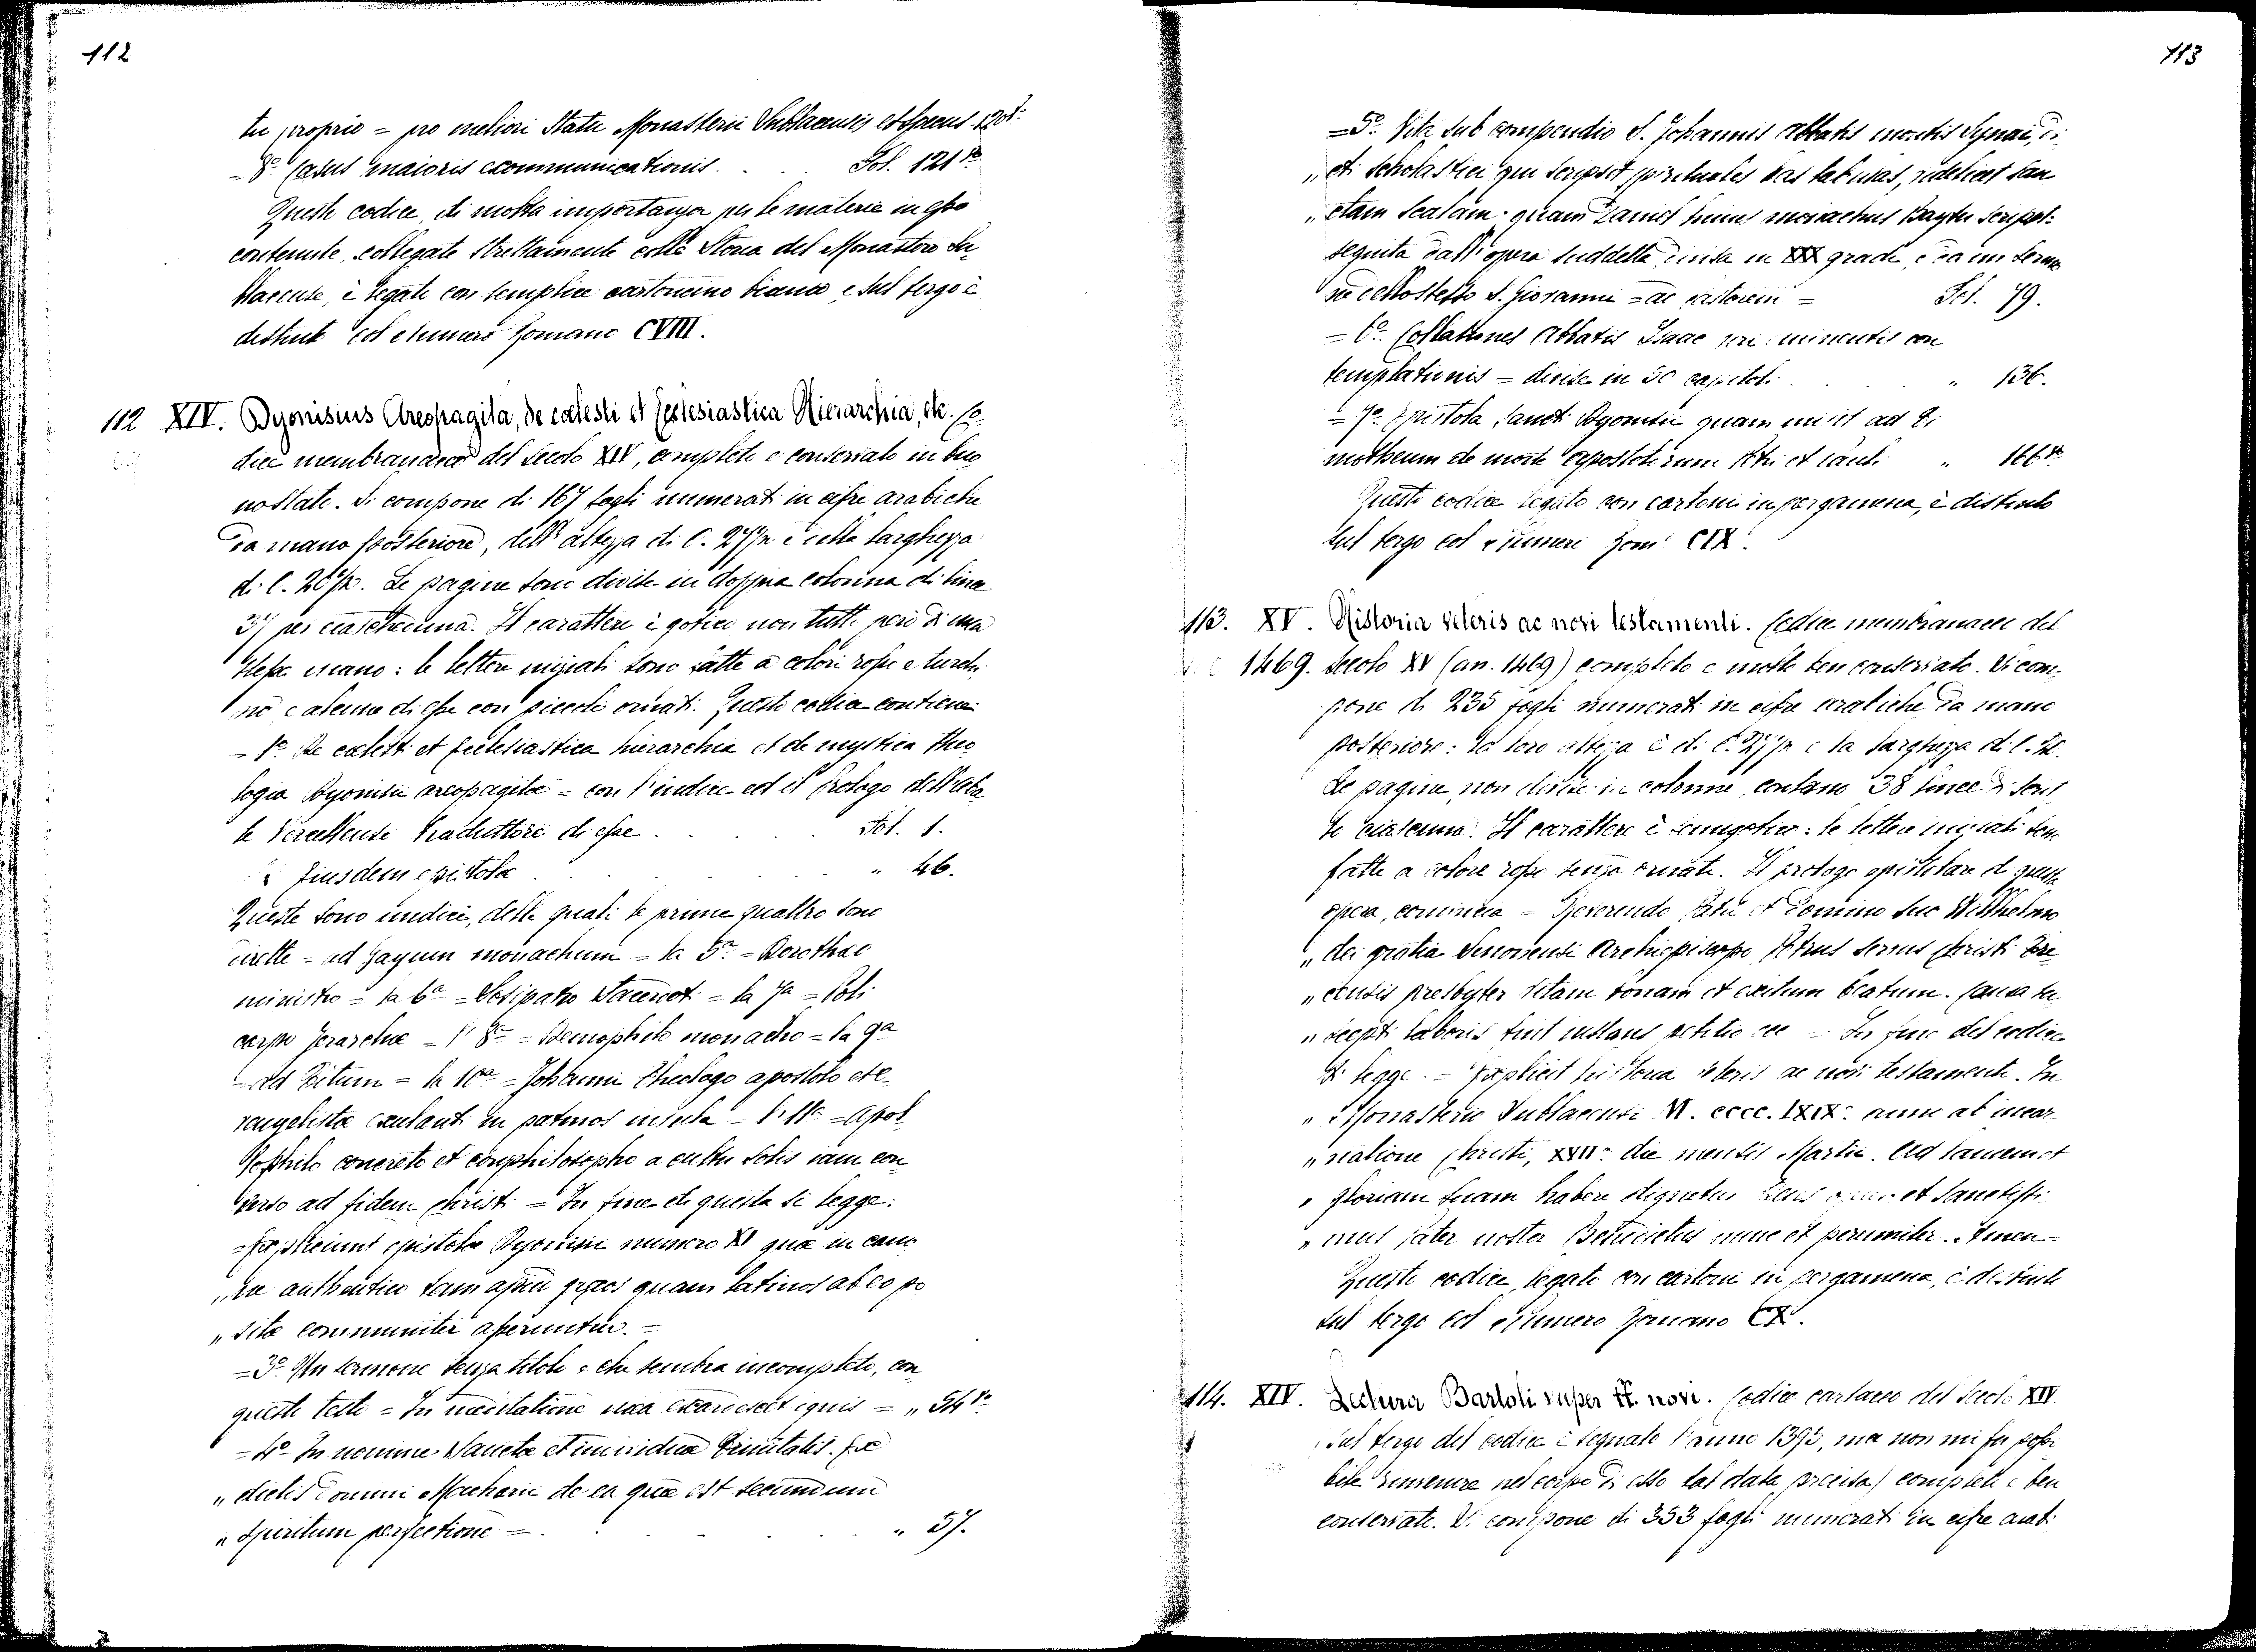 112
tu proprio = pro meliori Statu Monasterii Sublacensis et Specus 120 t.
= 8º Casus maioris excommunicationis. . . Fol. 121 to
Questo codice, di molta importanza per le materie in esso
contenute, collegate strettamente colla Storia del Monastero Su=
blacense, è legato con semplice cartoncino bianco, e sul tergo è
distinto col Numero Romano CVIII.
112 XIV. Dyonisius Areopagita, de cœlesti et Ecclesiastica Hierarchia, etc. Co=
dice membranaceo del Secolo XIV, completo e conservato in buo
no stato. Si compone di 167 fogli numerati in cifre arabiche
da mano posteriore, dell'altezza di C. 27 1/2 e della larghezza
di C. 20 1/2. Le pagine sono divise in doppia colonna di linee
37 per ciascheduna. Il carattere è gotico non tutto però di una
stessa mano: le lettere iniziali sono fatte a colori rosso e turchi
no e alcune di esse con piccoli ornati. Questo codice contiene:
= 1º De cœlesti et Ecclesiastica hierarchia et de mystica theo
logia Dyonisii areopagitæ = con l'indice ed il Prologo dell'Aba
te Vercellense traduttore di esse . . . Fol. 1.
Ejusdem epistolæ . . . " 46.
Queste sono undici, delle quali le prime quattro sono
dirette = ad Gayum monachum = la 5ª = Dorotheo
ministro = la 6ª = Sosipatro Sacerdoti = la 7ª = Poli
carpo Jerarchæ = l'8ª = Demophilo monacho = la 9ª
= ad Titum = la 10ª = Johanni Theologo apostolo et e=
vangelistæ exulanti in patmos insula = l'11ª = Apol
lophilo concreto et conphilosopho a cultu solis iam con
verso ad fidem Christi = In fine di questa si legge:
= Expliciunt epistolæ Dyonisii numero XI quæ in cano
" ne authentico tam apud græcos quam latinos ab eo po
" sitæ communiter asseruntur. =
= 3º Un sermone senza titolo e che sembra incompleto, con
questo testo = In meditatione mea exardescet ignis = " 54 to
= 4º In nomine Sanctæ et individuæ Trinitatis. Ex
" dictis Domini Macharii de ea quæ est secundum
" Spiritum perfectione = . . . " 57.
113
= 5º Vita sub compendio S. Johannis Abbatis montis Synai, di
" cti scholastici qui scripsit spirituales has tabulas, videlicet san
" ctam Scalam. quam Daniel huius monachus Raytu scripsit.
seguita dall'opera suddetta divisa in XXX gradi, e da un sermo
ne dello stesso S. Giovanni = ad pastorem = Fol. 79.
= 6º Collationes Abbatis Isaac pre eminentis con
templationis = divise in 50 capitoli . . . " 136.
= 7º Epistola Sancti Dyonisii quam misit ad Ti
motheum de morte Apostolorum Petri et Pauli " 166 to
Questo codice legato con cartoni in pergamena, è distinto
sul tergo col Numero Romº CIX.
113. XV. Historia veteris ac novi testamenti. Codice membranaceo del
1469. Secolo XV (an. 1469) completo e molto ben conservato. Si com=
pone di 235 fogli numerati in cifre arabiche da mano
posteriore: la loro altezza è di C. 29 1/2 e la larghezza di C. 21.
Le pagine, non divise in colonne, contano 38 linee di scrit
to ciascuna. Il carattere è semigotico: le lettere iniziali sono
fatte a colore rosso senza ornati. Il prologo epistolare di questa
opera, comincia = Reverendo Patri et Domino suo Willhelmo
" dei gratia Senonensi Archiepiscopo Petrus servus Christi Tre
" censis presbyter vitam bonam et exitum beatum. Causa su
" scepti laboris fuit instans petitio ecc = In fine del codice
si legge = Explicit historia veteris ac novi testamenti. In
" Monasterio Sublacensi M. cccc. LXIX. anno ab incar
" natione Christi, XXII. die mensis Martii. Ad laudem et
" gloriam suam habere dignetur et Sanctissi
" mus Pater noster Benedictus nunc et perenniter. Amen =
Questo codice, legato con cartoni in pergamena, è distinto
sul tergo col Numero Romano CX.
114. XIV. Lectura Bartoli super ff. novi. Codice cartaceo del Secolo XIV.
(sul tergo del codice è segnato l'anno 1393, ma non mi fu possi
bile rinvenire nel corpo di esso tal data precisa) completo e ben
conservato. Si compone di 353 fogli numerati in cifre arabi